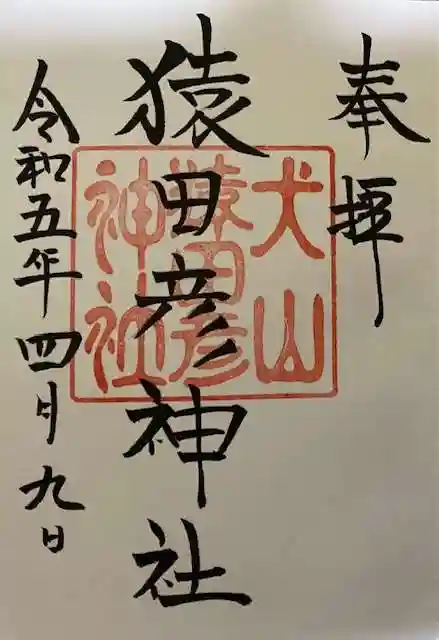 奉拝
犬山
猿田彦
神社
猿田彦神社
令和五年四月九日